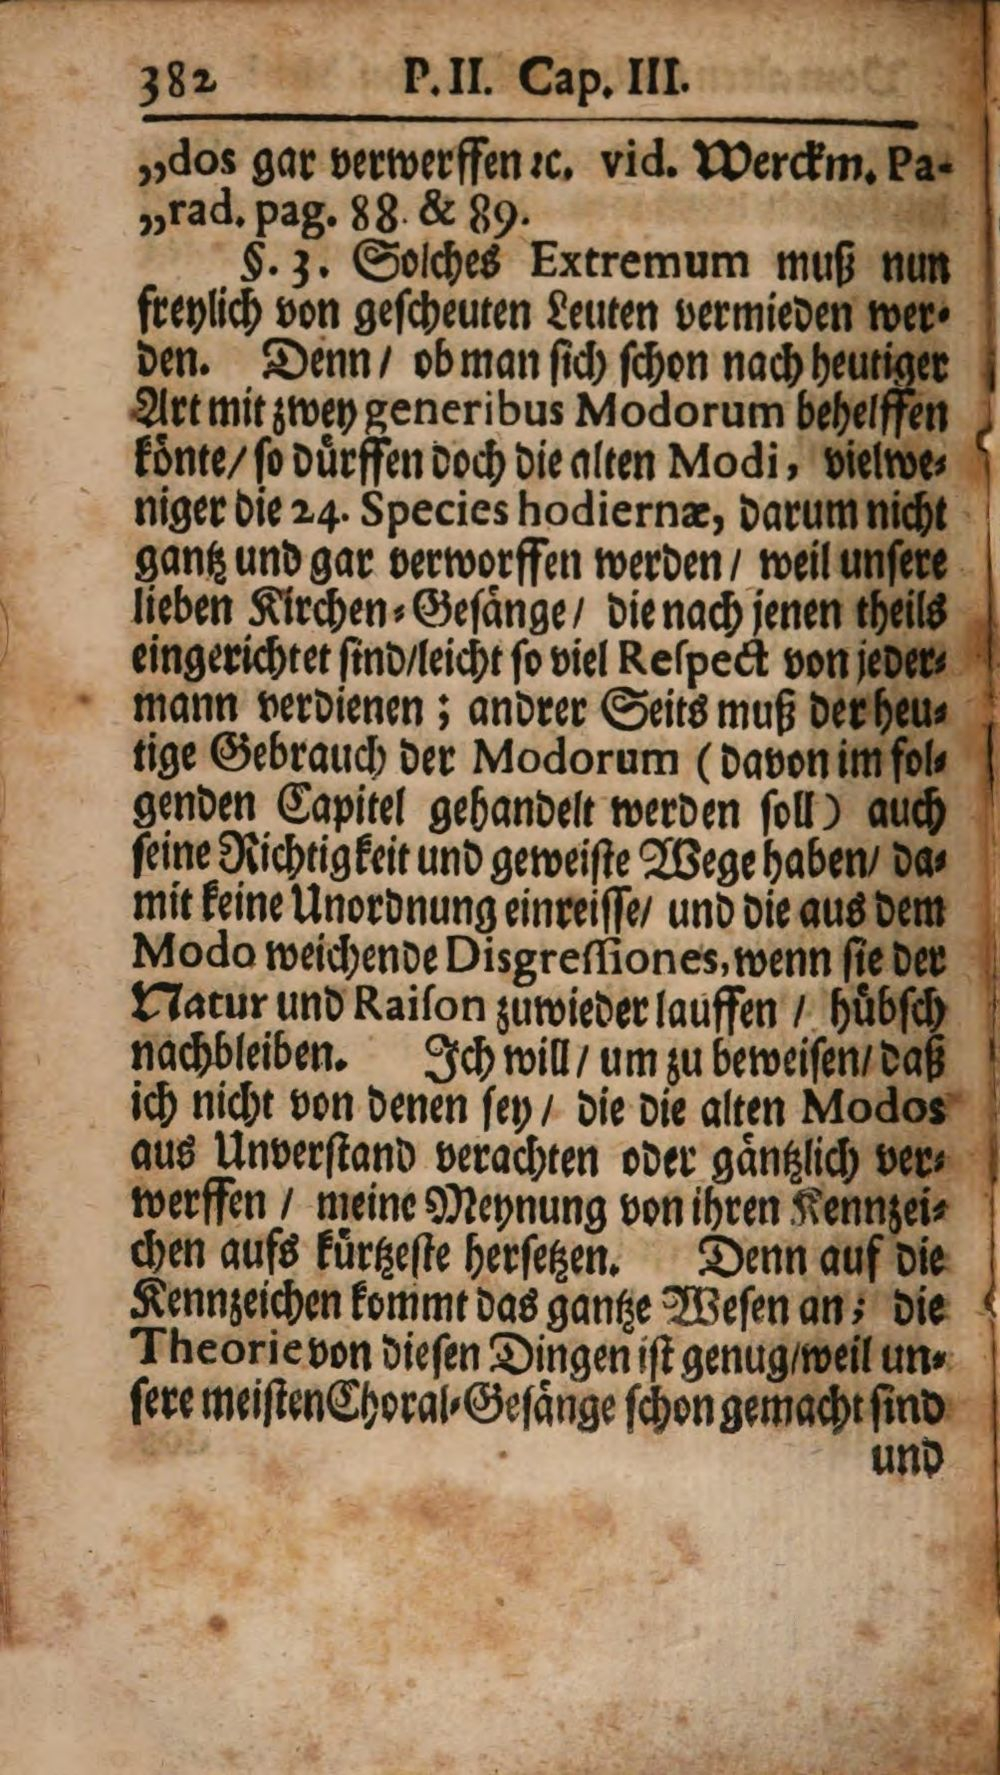 382 P. II. Cap. III.
„dos gar verwerffen ꝛc. vid. Werckm. Pa-
„rad. pag. 88. & 89.
§. 3. Solches Extremum muß nun
freylich von gescheuten Leuten vermieden wer-
den. Denn / ob man sich schon nach heutiger
Art mit zwey generibus Modorum behelffen
könte / so dürffen doch die alten Modi, vielwe-
niger die 24. Species hodiernæ, darum nicht
gantz und gar verworffen werden / weil unsere
lieben Kirchen-Gesänge / die nach jenen theils
eingerichtet sind / leicht so viel Respect von jeder-
mann verdienen ; andrer Seits muß der heu-
tige Gebrauch der Modorum ( davon im fol-
genden Capitel gehandelt werden soll ) auch
seine Richtigkeit und geweiste Wege haben / da-
mit keine Unordnung einreisse / und die aus dem
Modo weichende Disgressiones, wenn sie der
Natur und Raison zuwieder lauffen / hübsch
nachbleiben. Ich will / um zu beweisen / daß
ich nicht von denen sey / die die alten Modos
aus Unverstand verachten oder gäntzlich ver-
werffen / meine Meynung von ihren Kennzei-
chen aufs kürtzeste hersetzen. Denn auf die
Kennzeichen kommt das gantze Wesen an ; die
Theorie von diesen Dingen ist genug / weil un-
sere meisten Choral-Gesänge schon gemacht sind
und